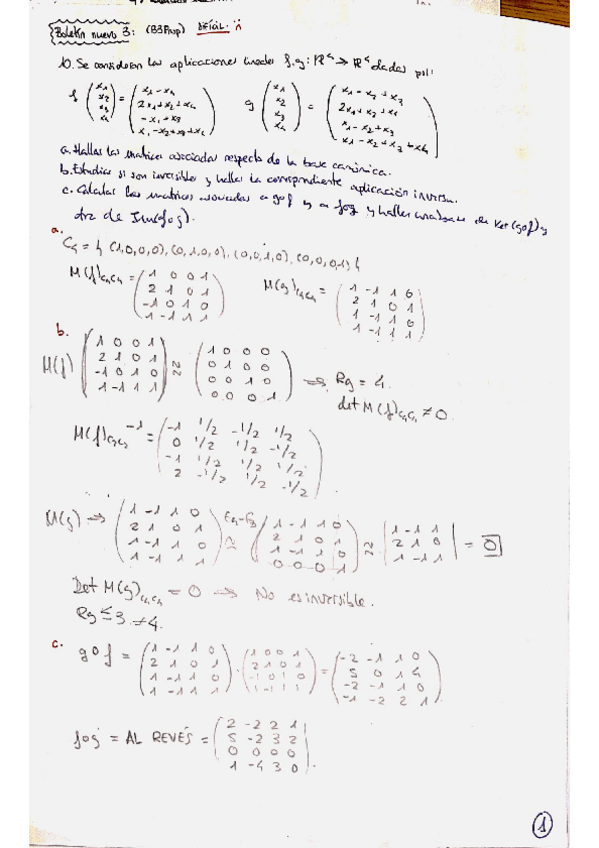 Boletín nuevo 3: (B3Prop) DIFÍCIL
10. Se consideran las aplicaciones lineales f, g: ℝ⁴ → ℝ⁴ dadas por:
f (x1 x2 x3 x4) = (x1 - x4, 2x1+x2+x4, -x1+x3, x1-x2+x3+x4) g (x1 x2 x3 x4) = (x1-x2+x3, 2x1+x2+x4, x1-x2+x3, x1-x2+x3+x4)
a. Hallar las matrices asociadas respecto de la base canónica.
b. Estudiar si son inversibles y hallar la correspondiente aplicación inversa.
c. Calcular las matrices asociadas a gof y a fog y hallar una base de Ker(gof) y
otra de Im(fog).
a.
C4 = { (1,0,0,0), (0,1,0,0), (0,0,1,0), (0,0,0,1) }
M(f)C4C4 = (1 0 0 1 / 2 1 0 1 / -1 0 1 0 / 1 -1 1 1) M(g)C4C4 = (1 -1 1 0 / 2 1 0 1 / 1 -1 1 0 / 1 -1 1 1)
b.
M(f) (1 0 0 1 / 2 1 0 1 / -1 0 1 0 / 1 -1 1 1) ≈ (1 0 0 0 / 0 1 0 0 / 0 0 1 0 / 0 0 0 1) ⇒ Rg = 4.
det M(f)C4C4 ≠ 0.
M(f)C4C4⁻¹ = (-1 1/2 -1/2 1/2 / 0 1/2 1/2 -1/2 / -1 1/2 1/2 1/2 / 2 -1/2 1/2 -1/2)
M(g) → (1 -1 1 0 / 2 1 0 1 / 1 -1 1 0 / 1 -1 1 1) ≈ (1 -1 1 0 / 2 1 0 1 / 1 -1 1 0 / 0 0 0 1) ≈ |1 -1 1 / 2 1 0 / 1 -1 1| = 0
Det M(g)C4C4 = 0 → No es inversible.
Rg ≤ 3 ≠ 4.
c.
gof = (1 -1 1 0 / 2 1 0 1 / 1 -1 1 0 / 1 -1 1 1) · (1 0 0 1 / 2 1 0 1 / -1 0 1 0 / 1 -1 1 1) = (-2 -1 1 0 / 5 0 1 4 / -2 -1 1 0 / -1 -2 2 1)
fog = AL REVÉS = (2 -2 2 1 / 5 -2 3 2 / 0 0 0 0 / 1 -4 3 0).
1